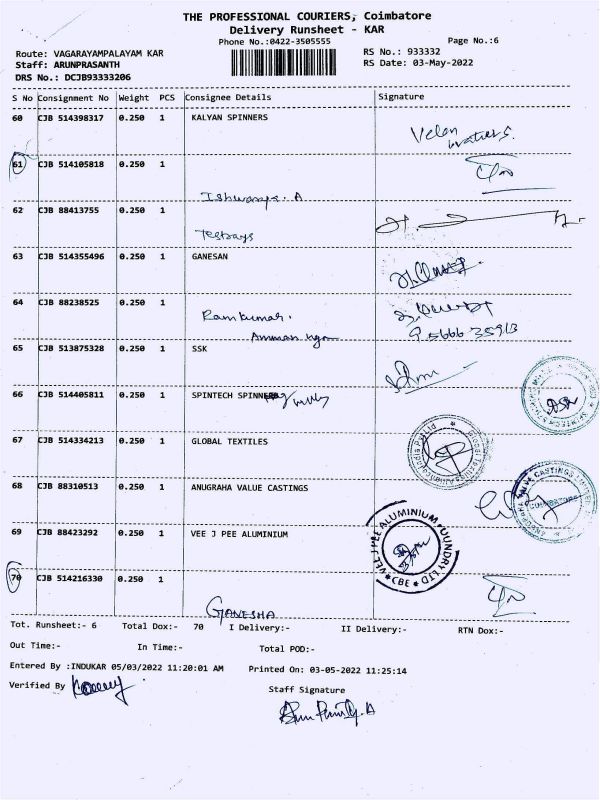 THE PROFESSIONAL COURIERS, Coimbatore
Delivery Runsheet - KAR
Phone No.:0422-3505555
Page No.:6
Route: VAGARAYAMPALAYAM KAR
RS No.: 933332
Staff: ARUNPRASANTH
RS Date: 03-May-2022
DRS No.: DCJB93333206
S No Consignment No Weight PCS Consignee Details Signature
60 CJB 514398317 0.250 1 KALYAN SPINNERS
61 CJB 514105818 0.250 1
Ishwarya. A
62 CJB 88413755 0.250 1
63 CJB 514355496 0.250 1 GANESAN
64 CJB 88238525 0.250 1
Ramkumar.
95666 35913
Amman
65 CJB 513875328 0.250 1 SSK
66 CJB 514405811 0.250 1 SPINTECH SPINNERS
67 CJB 514334213 0.250 1 GLOBAL TEXTILES
68 CJB 88310513 0.250 1 ANUGRAHA VALUE CASTINGS
ANUGRAHA VALVE CASTINGS LIMITED
COIMBATORE
69 CJB 88423292 0.250 1 VEE J PEE ALUMINIUM
VEE J PEE ALUMINIUM FOUNDRY LTD
CBE
70 CJB 514216330 0.250 1
GANESHA
Tot. Runsheet:- 6 Total Dox:- 70 I Delivery:- II Delivery:- RTN Dox:-
Out Time:- In Time:- Total POD:-
Entered By :INDUKAR 05/03/2022 11:20:01 AM Printed On: 03-05-2022 11:25:14
Verified By
Staff Signature